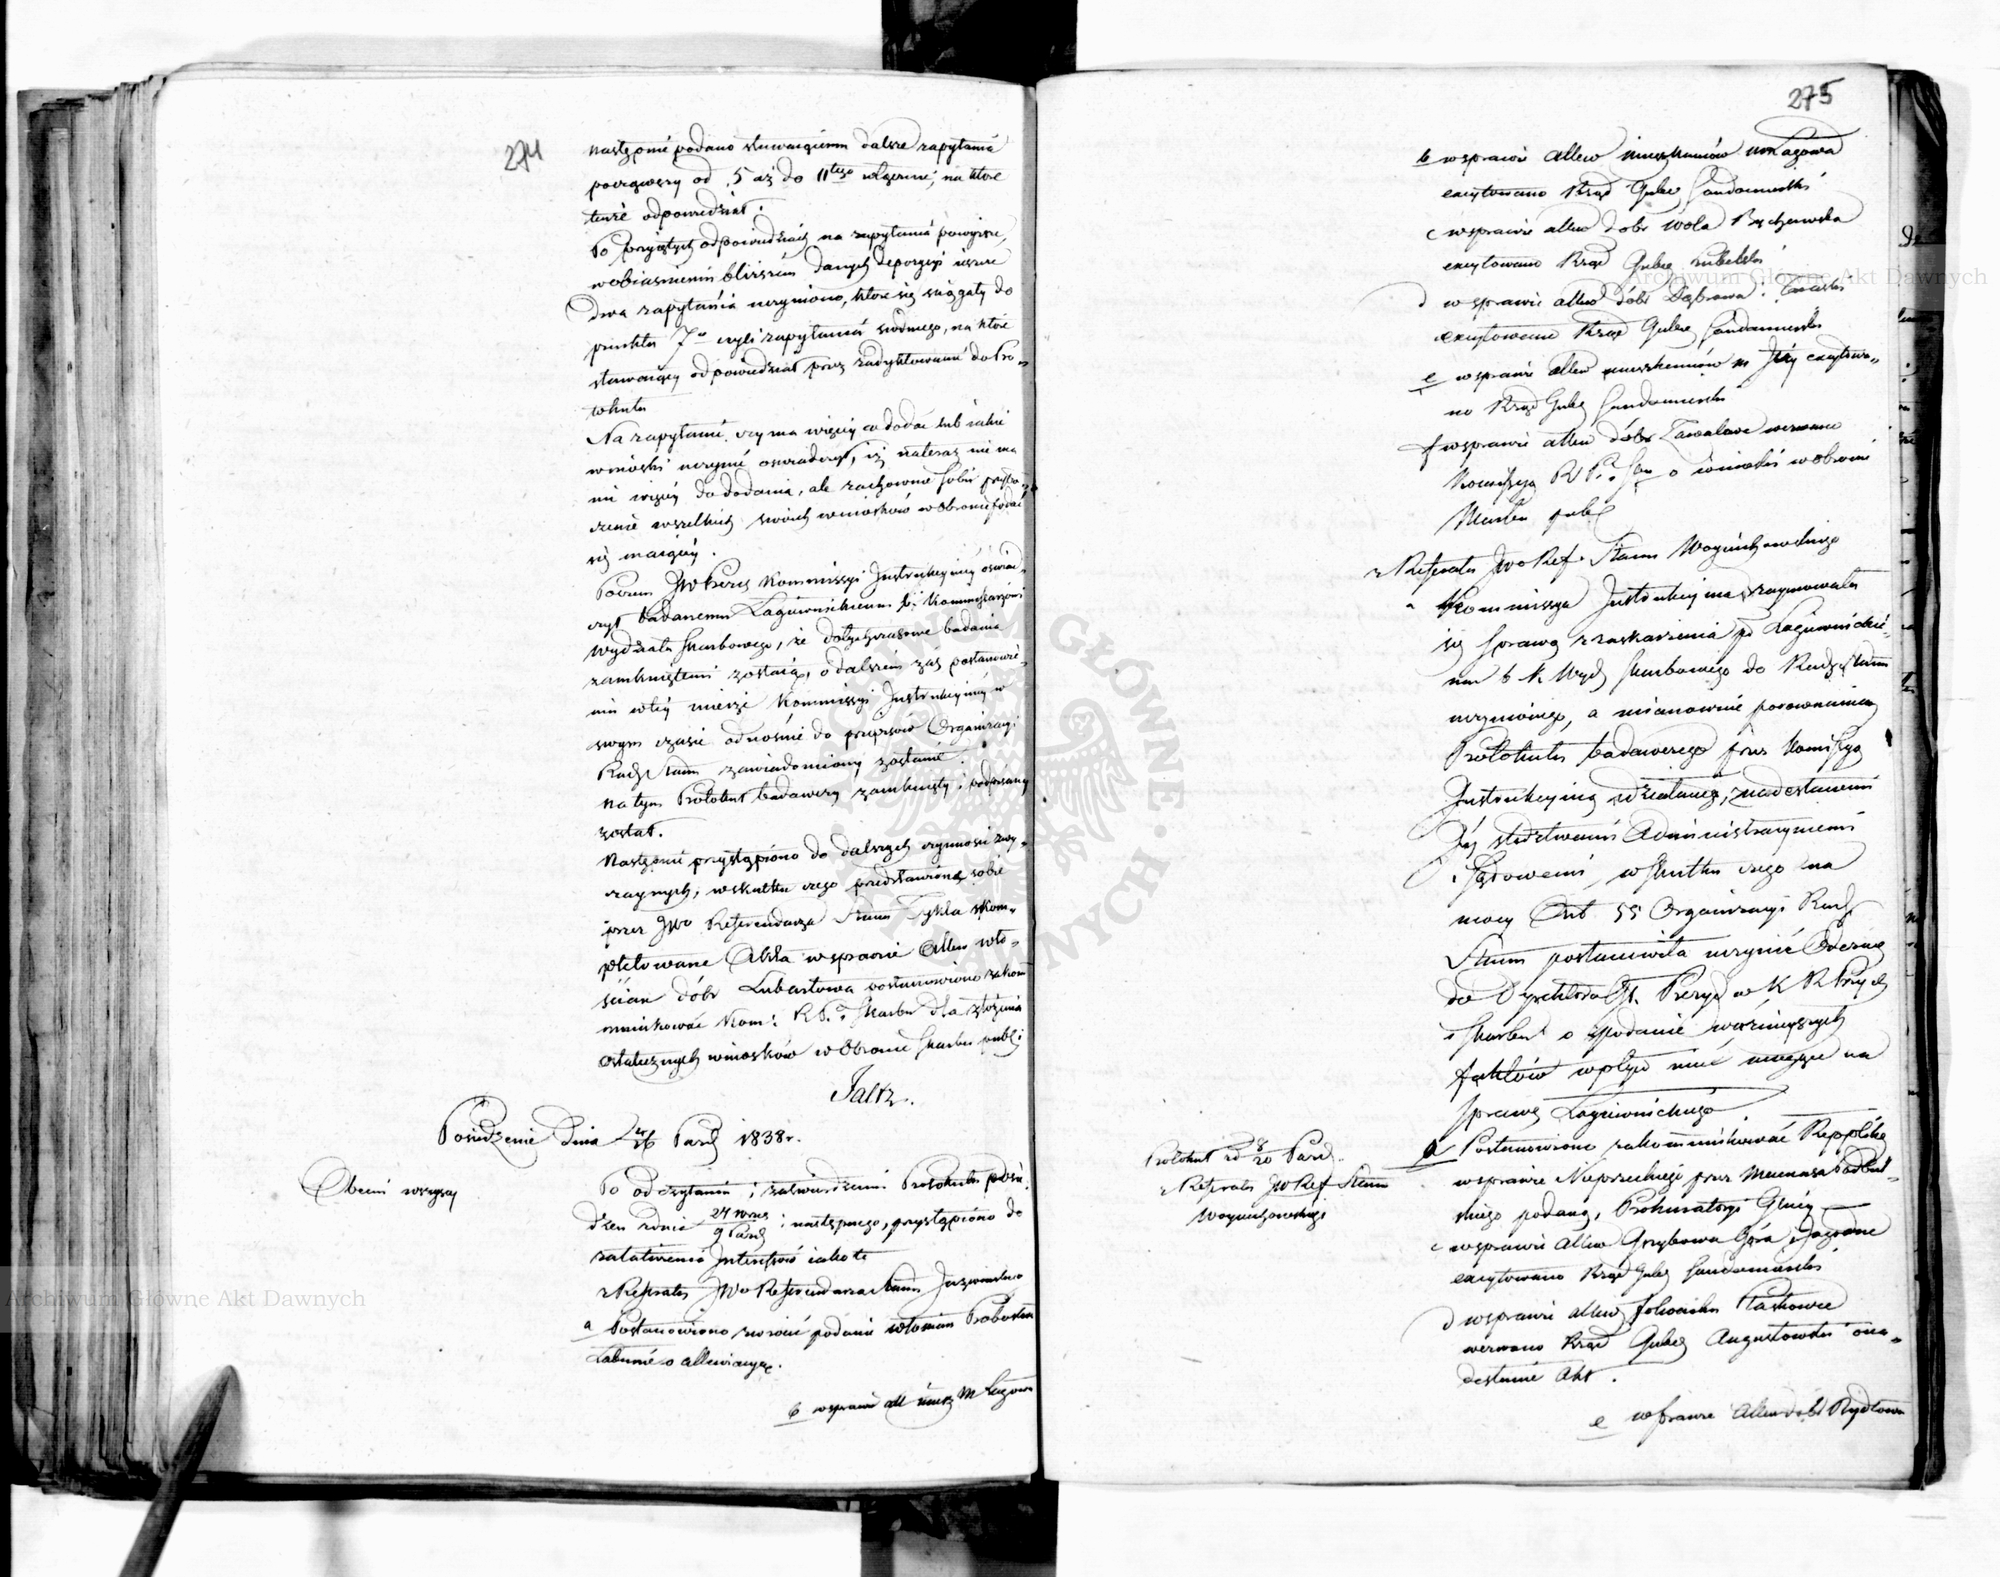 274
następnie podano stawaiącemu dalsze zapytania
począwszy od 5 aż do 11tego włącznie, na które
tenże odpowiedział.
Po przyjętych odpowiedziach na zapytania powyższe,
w obiaśnieniu bliższém danych depozycyi ieszcze
dwa zapytania uczyniono, które się ściągały do
punktu 7o czyli zapytania siódmego, na które
stawaiący odpowiedział przez zadyktowanie do Pro-
tokułu
Na zapytanie, czy ma więcéy co dodać lub iakie
wnioski uczynić oświadczył, iż nateraz nie ma
nic więcéy do dodania, ale zachowuie sobie
wszelkich swoich wniosków w Obronie podać
się maiącéy.
Poczem JWo Prezes Kommissyi Instrukcyinéy oświad-
czył badanemu Łagiewnickiemu b. Kommissarzowi
Wydziału Skarbowego, że dotychczasowe badania
zamkniętemi zostaią, o dalszém zaś postanowie-
niu w téy mierze Kommissyi Instrukcyinéy w
swym czasie odnośnie do przepisów Organizacyi
Rady Stanu zawiadomiony zostanie.
Na tym Protokuł badawczy zamknięty i podpisany
został.
Następnie przystąpiono do dalszych czynności zwy-
czaynych, w skutku czego przedstawione sobie
przez JWo Referendarza Stanu Tykla skom-
pletowane Akta w sprawie Allew. wło-
ścian dóbr Lubartowa postanowiono zakom
munikować Kom: R P. i Skarbu dla złożenia
ostatecznych wniosków w Obronie Skarbu publ:
Posiedzenie dnia 26 Paźd 1838 r.
Obecni wszyscy
Po odczytaniu i zatwierdzeniu Protokułu posie-
dzeń z dnia 27 Wrześ / 9 Paźd i następnego, przystąpiono do
załatwienia Interessów iakoto
z Referatu JWo Referendarza Stanu
a Postanowiono zwrócić podanie włościan Probostwa
Łabunie o allewiacyę.
b w sprawie all miesz. M Łagowa
275
b w sprawie allew mieszkańców m Łagowa
excytowano Rząd Guber Sandomierski
c w sprawie allew dóbr Wola Bychawska
excytowano Rząd Guber Lubelski
d w sprawie allew dóbr Dąbrowa
excytowano Rząd Guber Sandomierski
e w sprawie allew mieszkańców m Iłży excytowa-
no Rząd Guber Sandomierski
f w sprawie allew dóbr wezwano
Komissyą R P. i Sk o wnioski w obronie
Skarbu publ
z Referatu JWo Ref. Stanu Woyciechowskiego
a Kommissya Instrukcyina zaymowała
się sprawą z zaskarżenia po Łagiewnickie-
mu b K. Wydz Skarbowego do Rady Stanu
uczynionego, a mianowicie porównaniem
Protokułu badawczego przez Komissyą
Instrukcyiną zdziałanego, z nadesłanemi
Jéy śledztwami Administracyinemi
i Sądowemi, w skutku czego na
mocy Art 55 Organizacyi Rady
Stanu postanowiła uczynić Odezwę
do Dyrektora Gł. Prezyd w K R Przych
i Skarbu o podanie ważnieyszych
faktów wpływ mieć mogące na
sprawę Łagiewnickiego.
Protokuł z d 8/20 Paźd.
z Referatu JWo Ref Stanu
Woyciechowskiego
b Postanowiono zakommunikować Replikę
w sprawie Nieprzeckiego przez Mecenasa
podaną, Prokuratoryi Głnéy
c w sprawie allew Grzybowa Góra i Jagodne
excytowano Rząd Guber Sandomierski
d w sprawie allew folwarku
wezwano Rząd Guber Augustowski o na-
desłanie Akt.
e w sprawie Allew dóbr
Archiwum Główne Akt Dawnych
Archiwum Główne Akt Dawnych
ARCHIWUM GŁÓWNE AKT DAWNYCH